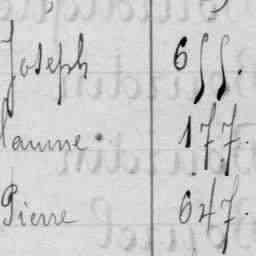 Joseph 655.
Jaume. 177.
Pierre 647.